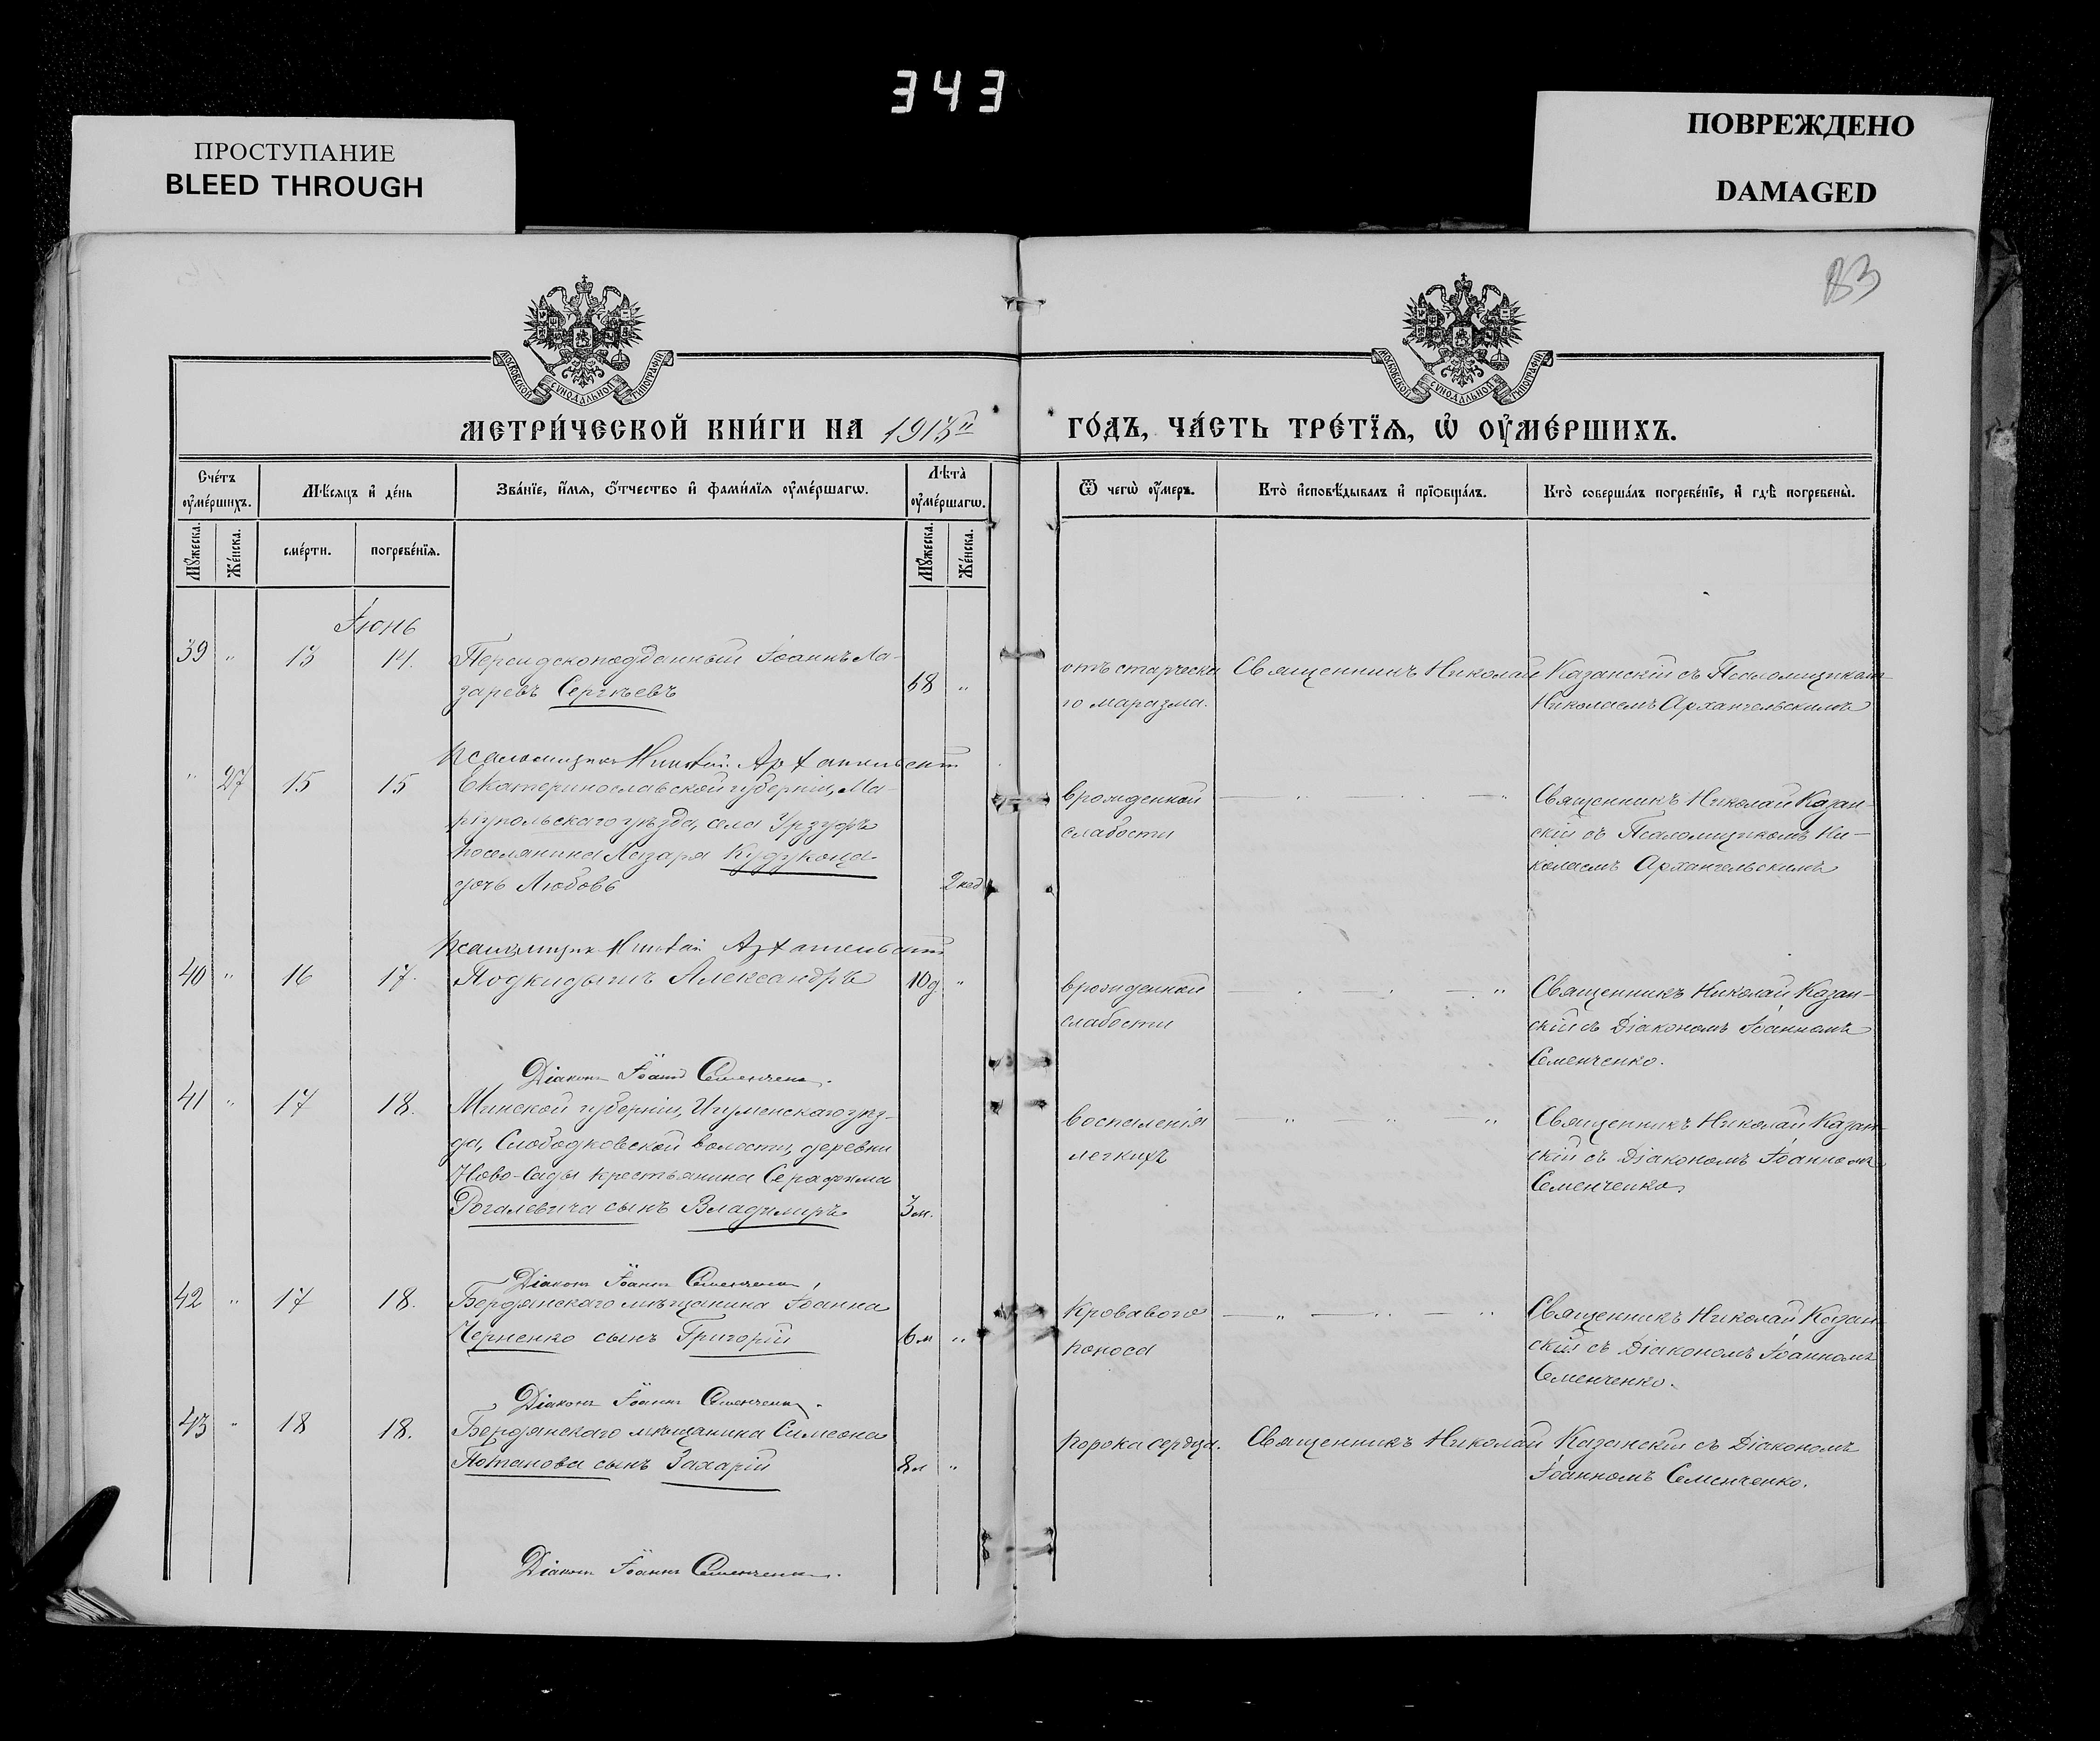 343
ПРОСТУПАНИЕ
BLEED THROUGH
ПОВРЕЖДЕНО
DAMAGED
83
МОСКОВСКОЙ СУНОДАЛЬНОЙ ТИПОГРАФІИ
МОСКОВСКОЙ СУНОДАЛЬНОЙ ТИПОГРАФІИ
МЕТРИ́ЧЕСКОЙ КНИ́ГИ НА 1913й ГО́ДЪ, ЧА́СТЬ ТРЕ́ТЇѦ, Ѡ҆ ОУ҆МЕ́РШИХЪ.
Сче́тъ оу҆ме́ршихъ.
Мѣ́сѧцъ и҆ де́нь
Зва́нїе, и҆́мѧ, ѻ҆́тчество и҆ фами́лїѧ оу҆ме́ршагѡ.
Лѣ̀та оу҆ме́ршагѡ.
Ѿ чегѡ̀ оу҆́меръ.
Кто̀ и҆сповѣ́дывалъ и҆ прїѡбща́лъ.
Кто̀ соверша́лъ погребе́нїе, и҆ гдѣ̀ погребены̀.
Мꙋ́жеска.
Же́нска.
сме́рти.
погребе́нїѧ.
Мꙋ́жеска.
Же́нска.
Іюнь
39 " 13 14. Персидскоподданный Іоаннъ Ла-
заревъ Сергѣевъ 68 "
отъ старческа
го маразма.
Священникъ Николай Казанскій съ Псаломщикомъ
Николаемъ Архангельскимъ
Псаломщикъ Николай Архангельскій
" 27 15 15 Екатеринославской губерніи, Ма-
ріупольскаго уѣзда, села Урзуфъ
поселянина Лазаря Кудукоца
дочь Любовь 2 нед
врожденной
слабости
Священникъ Николай Казан-
скій съ Псаломщикомъ Ни-
колаемъ Архангельскимъ
Псаломщикъ Николай Архангельскій
40 " 16 17. Подкидышъ Александръ 10 д "
врожденной
слабости
Священникъ Николай Казан-
скій съ Діакономъ Іоанномъ
Семенченко.
Діаконъ Іоаннъ Семенченко.
41 " 17 18. Минской губерніи, Игуменскаго уѣз-
да, Слободковской волости, деревни
Ново-Сады крестьянина Серафима
Рогалевича сынъ Владимиръ 3 м.
воспаленія
легкихъ
Священникъ Николай Казан-
скій съ Діакономъ Іоанномъ
Семенченко
Діаконъ Іоаннъ Семенченко.
42 " 17 18. Бердянскаго мѣщанина Іоанна
Черненко сынъ Григорій 6 м "
Кроваваго
поноса
Священникъ Николай Казан-
скій съ Діакономъ Іоанномъ
Семенченко.
Діаконъ Іоаннъ Семенченко.
43 " 18 18. Бердянскаго мѣщанина Симеона
Потапова сынъ Захарій 8 л "
порока сердца.
Священникъ Николай Казанскій съ Діакономъ
Іоанномъ Семенченко.
Діаконъ Іоаннъ Семенченко.